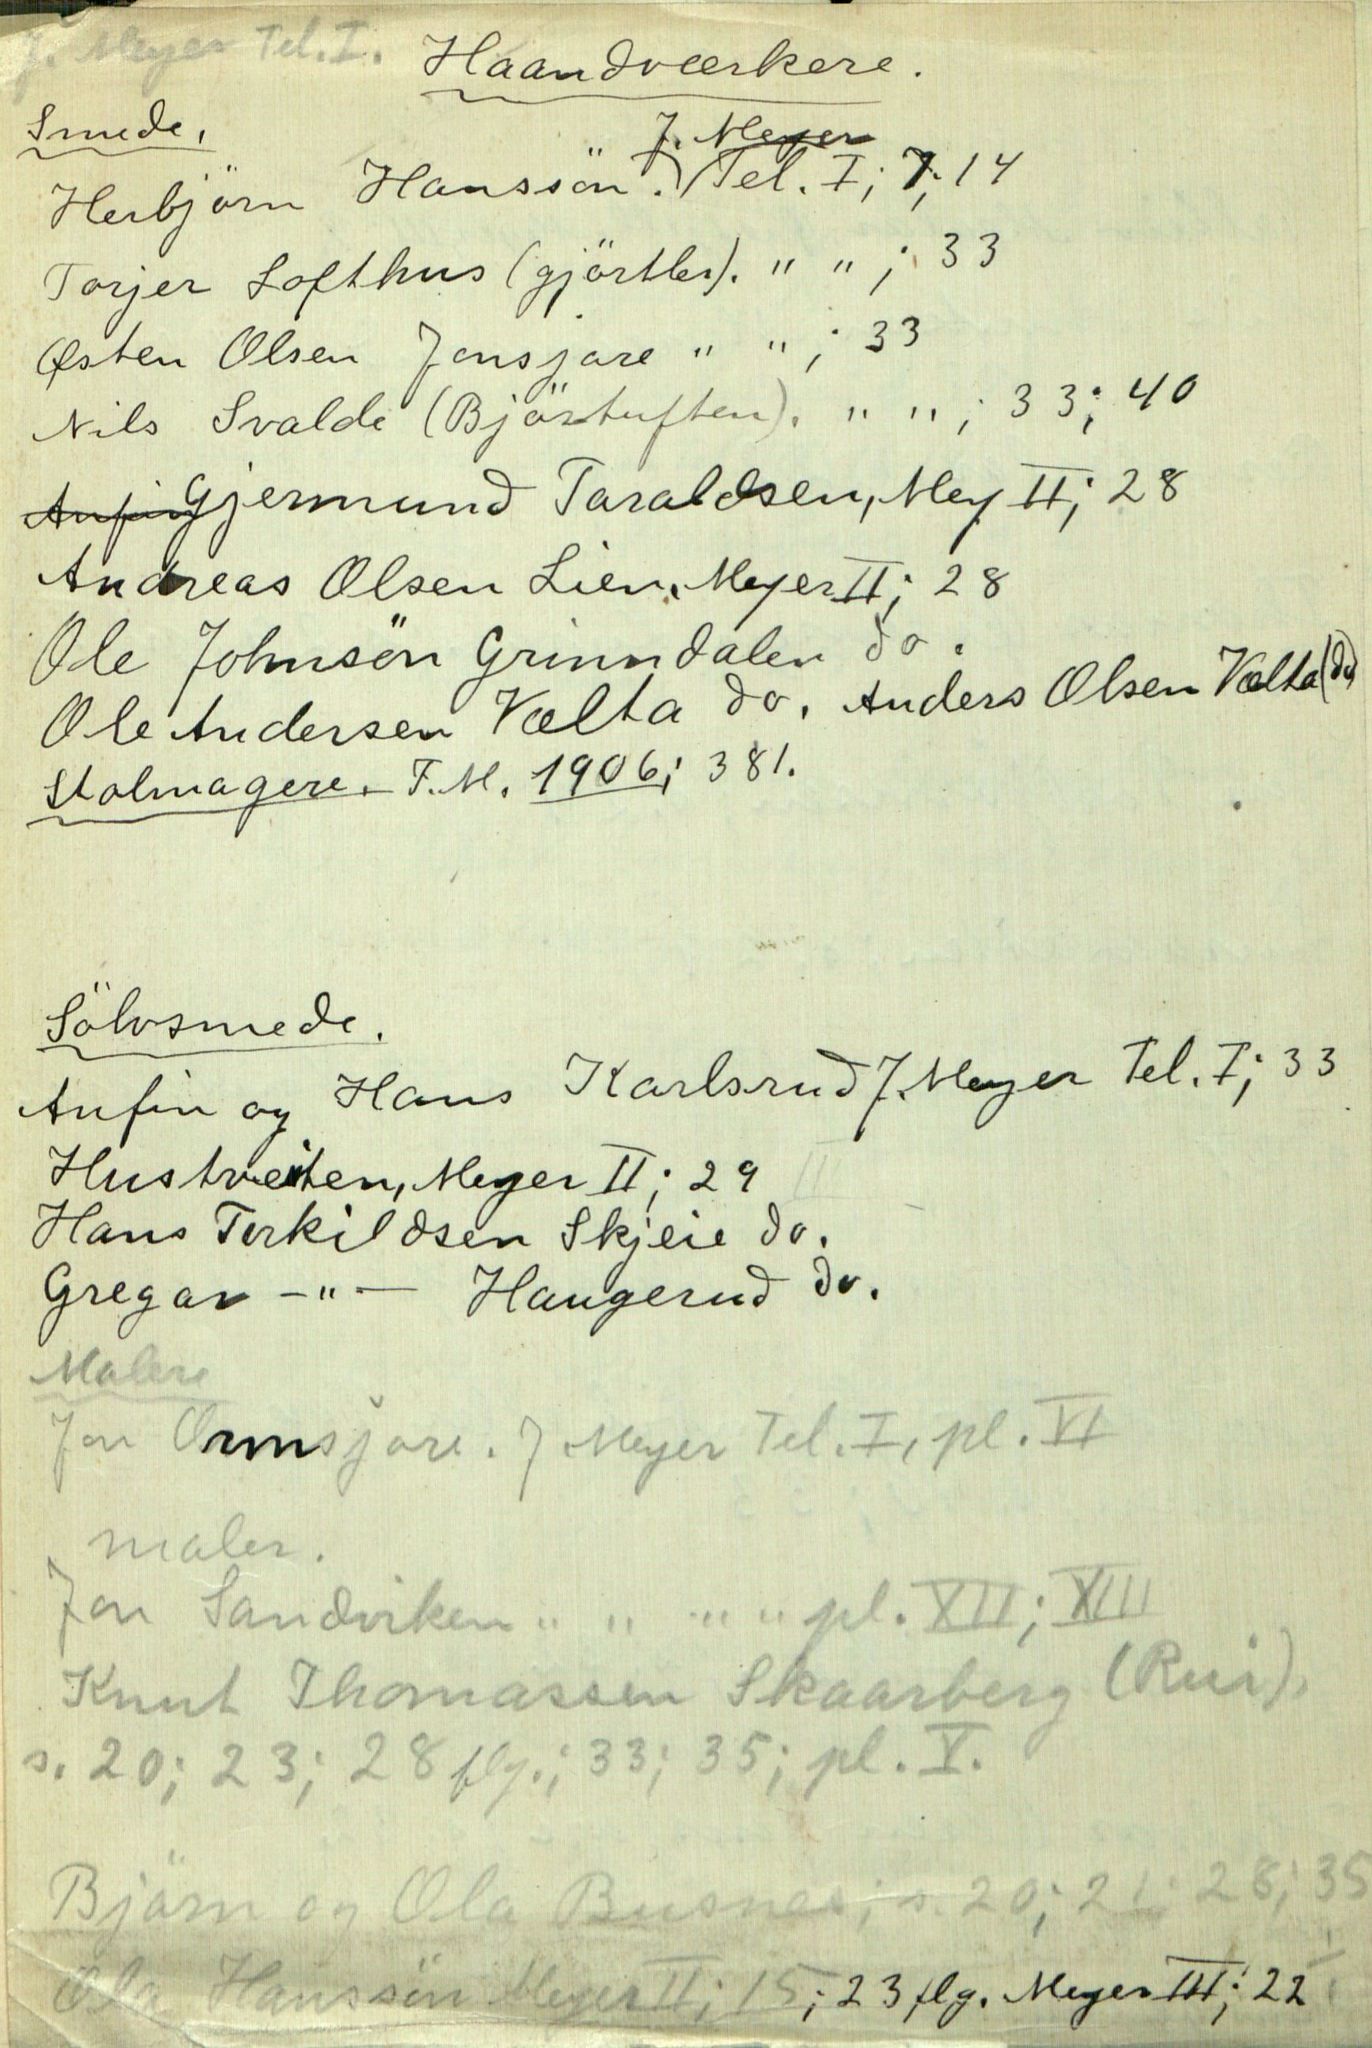 J. Meyer Tel. I. Haandværkere.
Smede.
J. Meyer
Herbjörn Hanssön. Tel. I; 7; 14
Torjer Lofthus (gjörtler). " " ; 33
Østen Olsen Jonsjore " " ; 33
Nils Svalde (Björtuften). " " ; 33; 40
Anfin Gjermund Taraldsen, Mey II; 28
Andreas Olsen Lien, Meyer II; 28
Ole Johnsön Grinndalen do.
Ole Andersen Vælta do. Anders Olsen Vælta (do)
Stolmagere. T. M. 1906; 381.
Sölvsmede.
Anfin og Hans Karlsrud J. Meyer Tel. I; 33
Hustveiten, Meyer II; 29 II
Hans Terkildsen Skjeie do.
Gregar —"— Haugerud do.
Malere
Jon Ormsjore. J Meyer Tel. I, pl. VI
maler.
Jon Sandviken " " " " pl. XII; XIII
Knut Thomassen Skaarberg (Rui).
s. 20; 23; 28 flg.; 33; 35; pl. V.
Björn og Ola Busnes; s. 20; 21; 28; 35
Ola Hanssön Meyer II; 15; 23 flg. Meyer III; 22